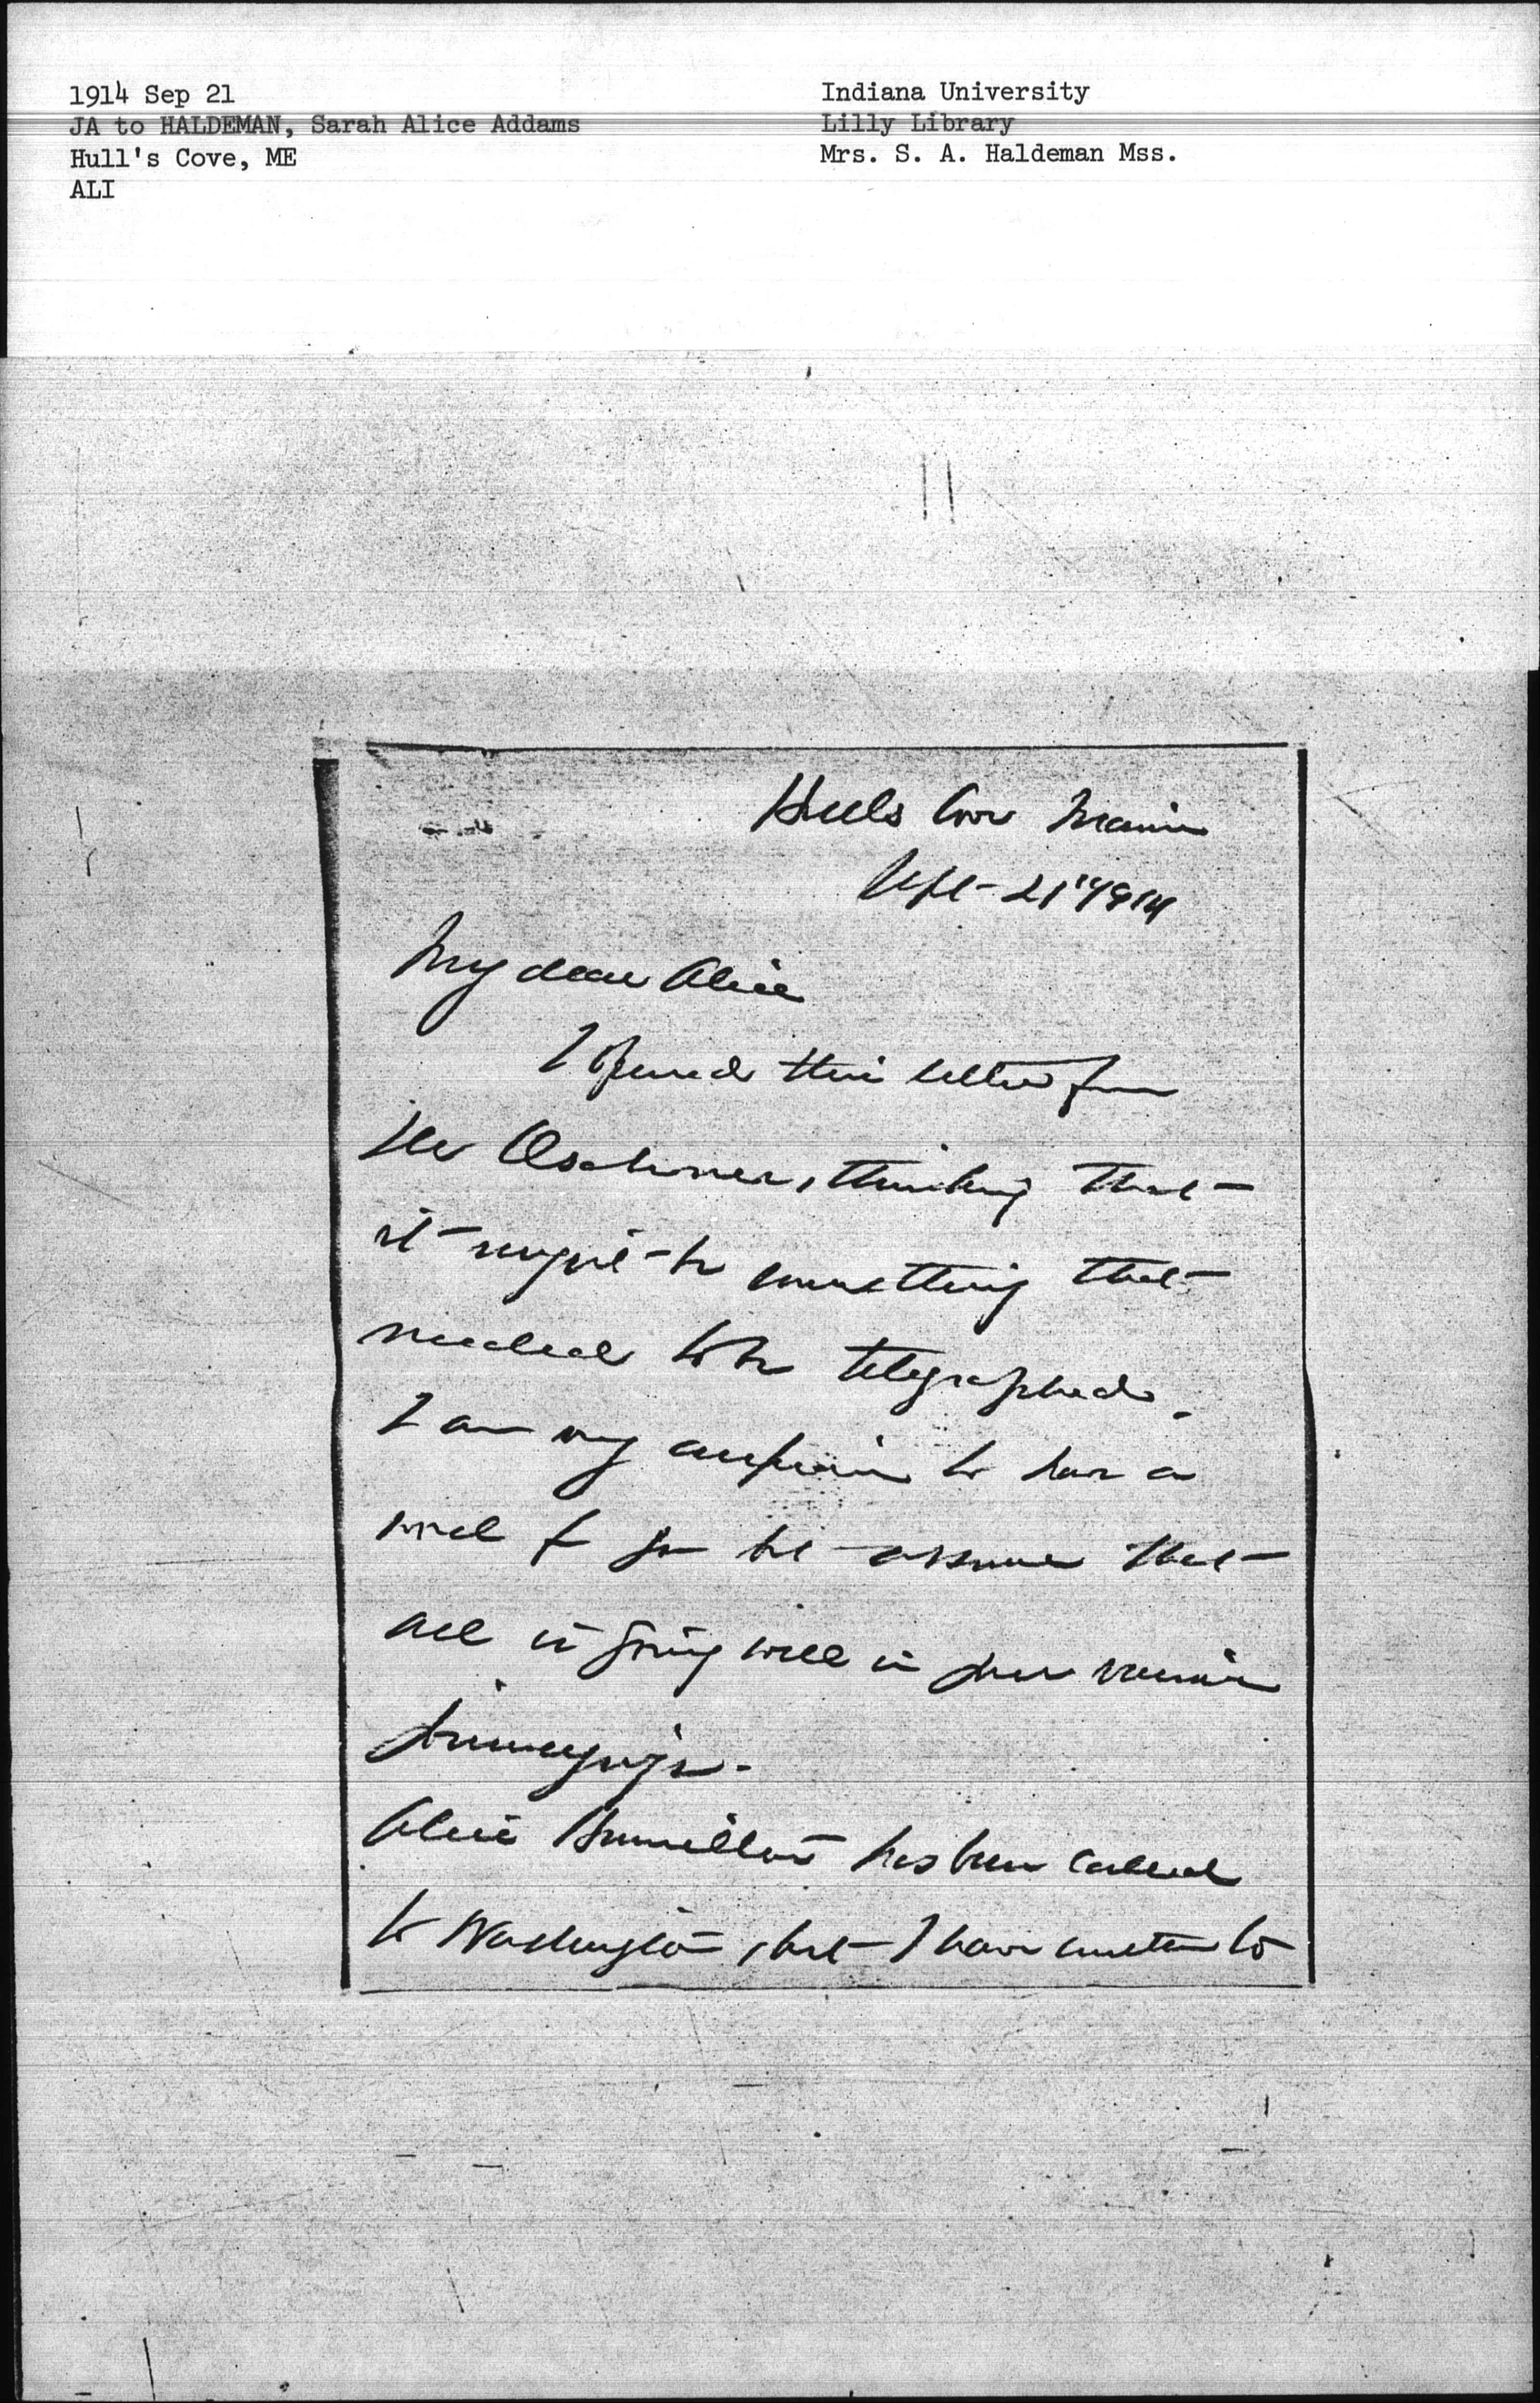 1914 Sep 21
JA to HALDEMAN, Sarah Alice Addams
Hull's Cove, ME
ALI
Indiana University
Lilly Library
Mrs. S. A. Haldeman Mss.
Hulls Cove Maine
Sept 21" 1914
My dear Alice
I opened this letter from
Dr Ochsner, thinking that
it might be something that
needed to be telegraphed.
I am very anxious to have a
word from you but assume that
all is going well in your
Alice Hamilton has been called
to Washington, but I have written to